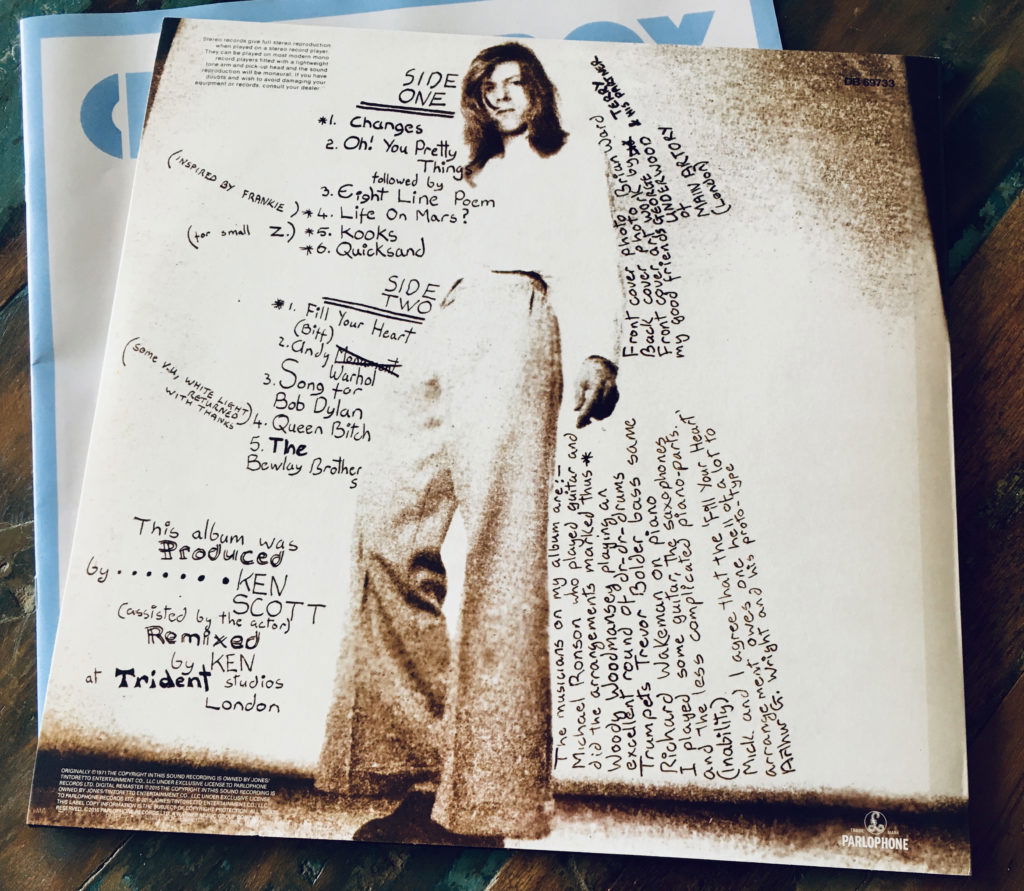 Stereo records give full stereo reproduction
when played on a stereo record player.
They can be played on most modern mono
record players fitted with a lightweight
tone arm and pick-up head and the sound
reproduction will be monaural. If you have
doubts and wish to avoid damaging your
equipment or records, consult your dealer
DB 69733
SIDE
ONE
*1. Changes
2. Oh! You Pretty
Things
followed by
3. Eight Line Poem
(INSPIRED BY FRANKIE) *4. Life On Mars?
(for small Z.) *5. Kooks
*6. Quicksand
SIDE
TWO
*1. Fill Your Heart
(Biff)
2. Andy
Warhol
3. Song for
Bob Dylan
(Some V.U, WHITE LIGHT
RETURNED
WITH THANKS)
4. Queen Bitch
5. The
Bewlay Brothers
This album was
Produced
by ....... KEN
SCOTT
(assisted by the actor)
Remixed
by KEN
at Trident studios
London
Front cover photo. Brian Ward
Back cover photo by
Front cover art work by TERRY
& HIS PARTNER
my good friends GEORGE UNDERWOOD
of
MAIN ARTORY
(London)
The musicians on my album are:-
Michael Ronson who played guitar and
did the arrangements marked thus *
Woody Woodmansey playing an
excellent round of dr-dr-drums
Trumpets Trevor Bolder bass same
Richard Wakeman on piano
I played some guitar, the saxophones
and the less complicated piano-parts.
(inability)
Mick and I agree that the 'Fill Your Heart'
arrangement owes one hell of a lot to
Arthur G. Wright and his proto-type
ORIGINALLY ©1971 THE COPYRIGHT IN THIS SOUND RECORDING IS OWNED BY JONES/
TINTORETTO ENTERTAINMENT CO., LLC UNDER EXCLUSIVE LICENSE TO PARLOPHONE
RECORDS LTD. DIGITAL REMASTER
OWNED BY JONES/TINTORETTO ENTERTAINMENT CO., LLC UNDER EXCLUSIVE LICENSE
TO PARLOPHONE RECORDS LTD.
THIS LABEL COPY INFORMATION IS THE SUBJECT OF COPYRIGHT PROTECTION.
TRADE MARK
PARLOPHONE